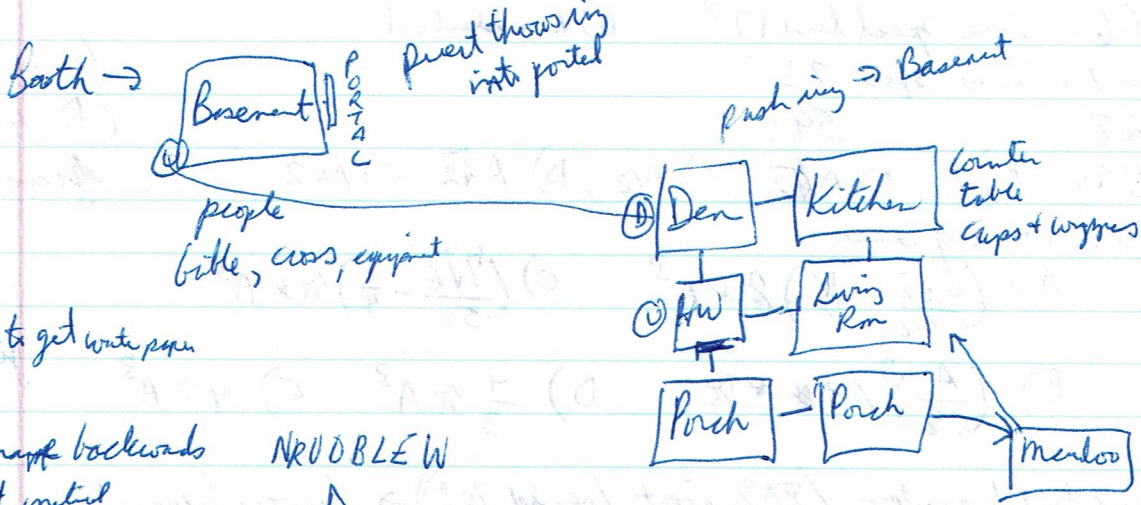 Booth →
Basement
PORTAL
priest throws ring
into portal
push ring → Basement
U
people
bible, cross, equipment
D
Den
Kitchen
Counter
table
cups + wrappers
U
HW
Living
Rm
to get write paper
Porch
Porch
Meadow
backwards NRUOBLEW